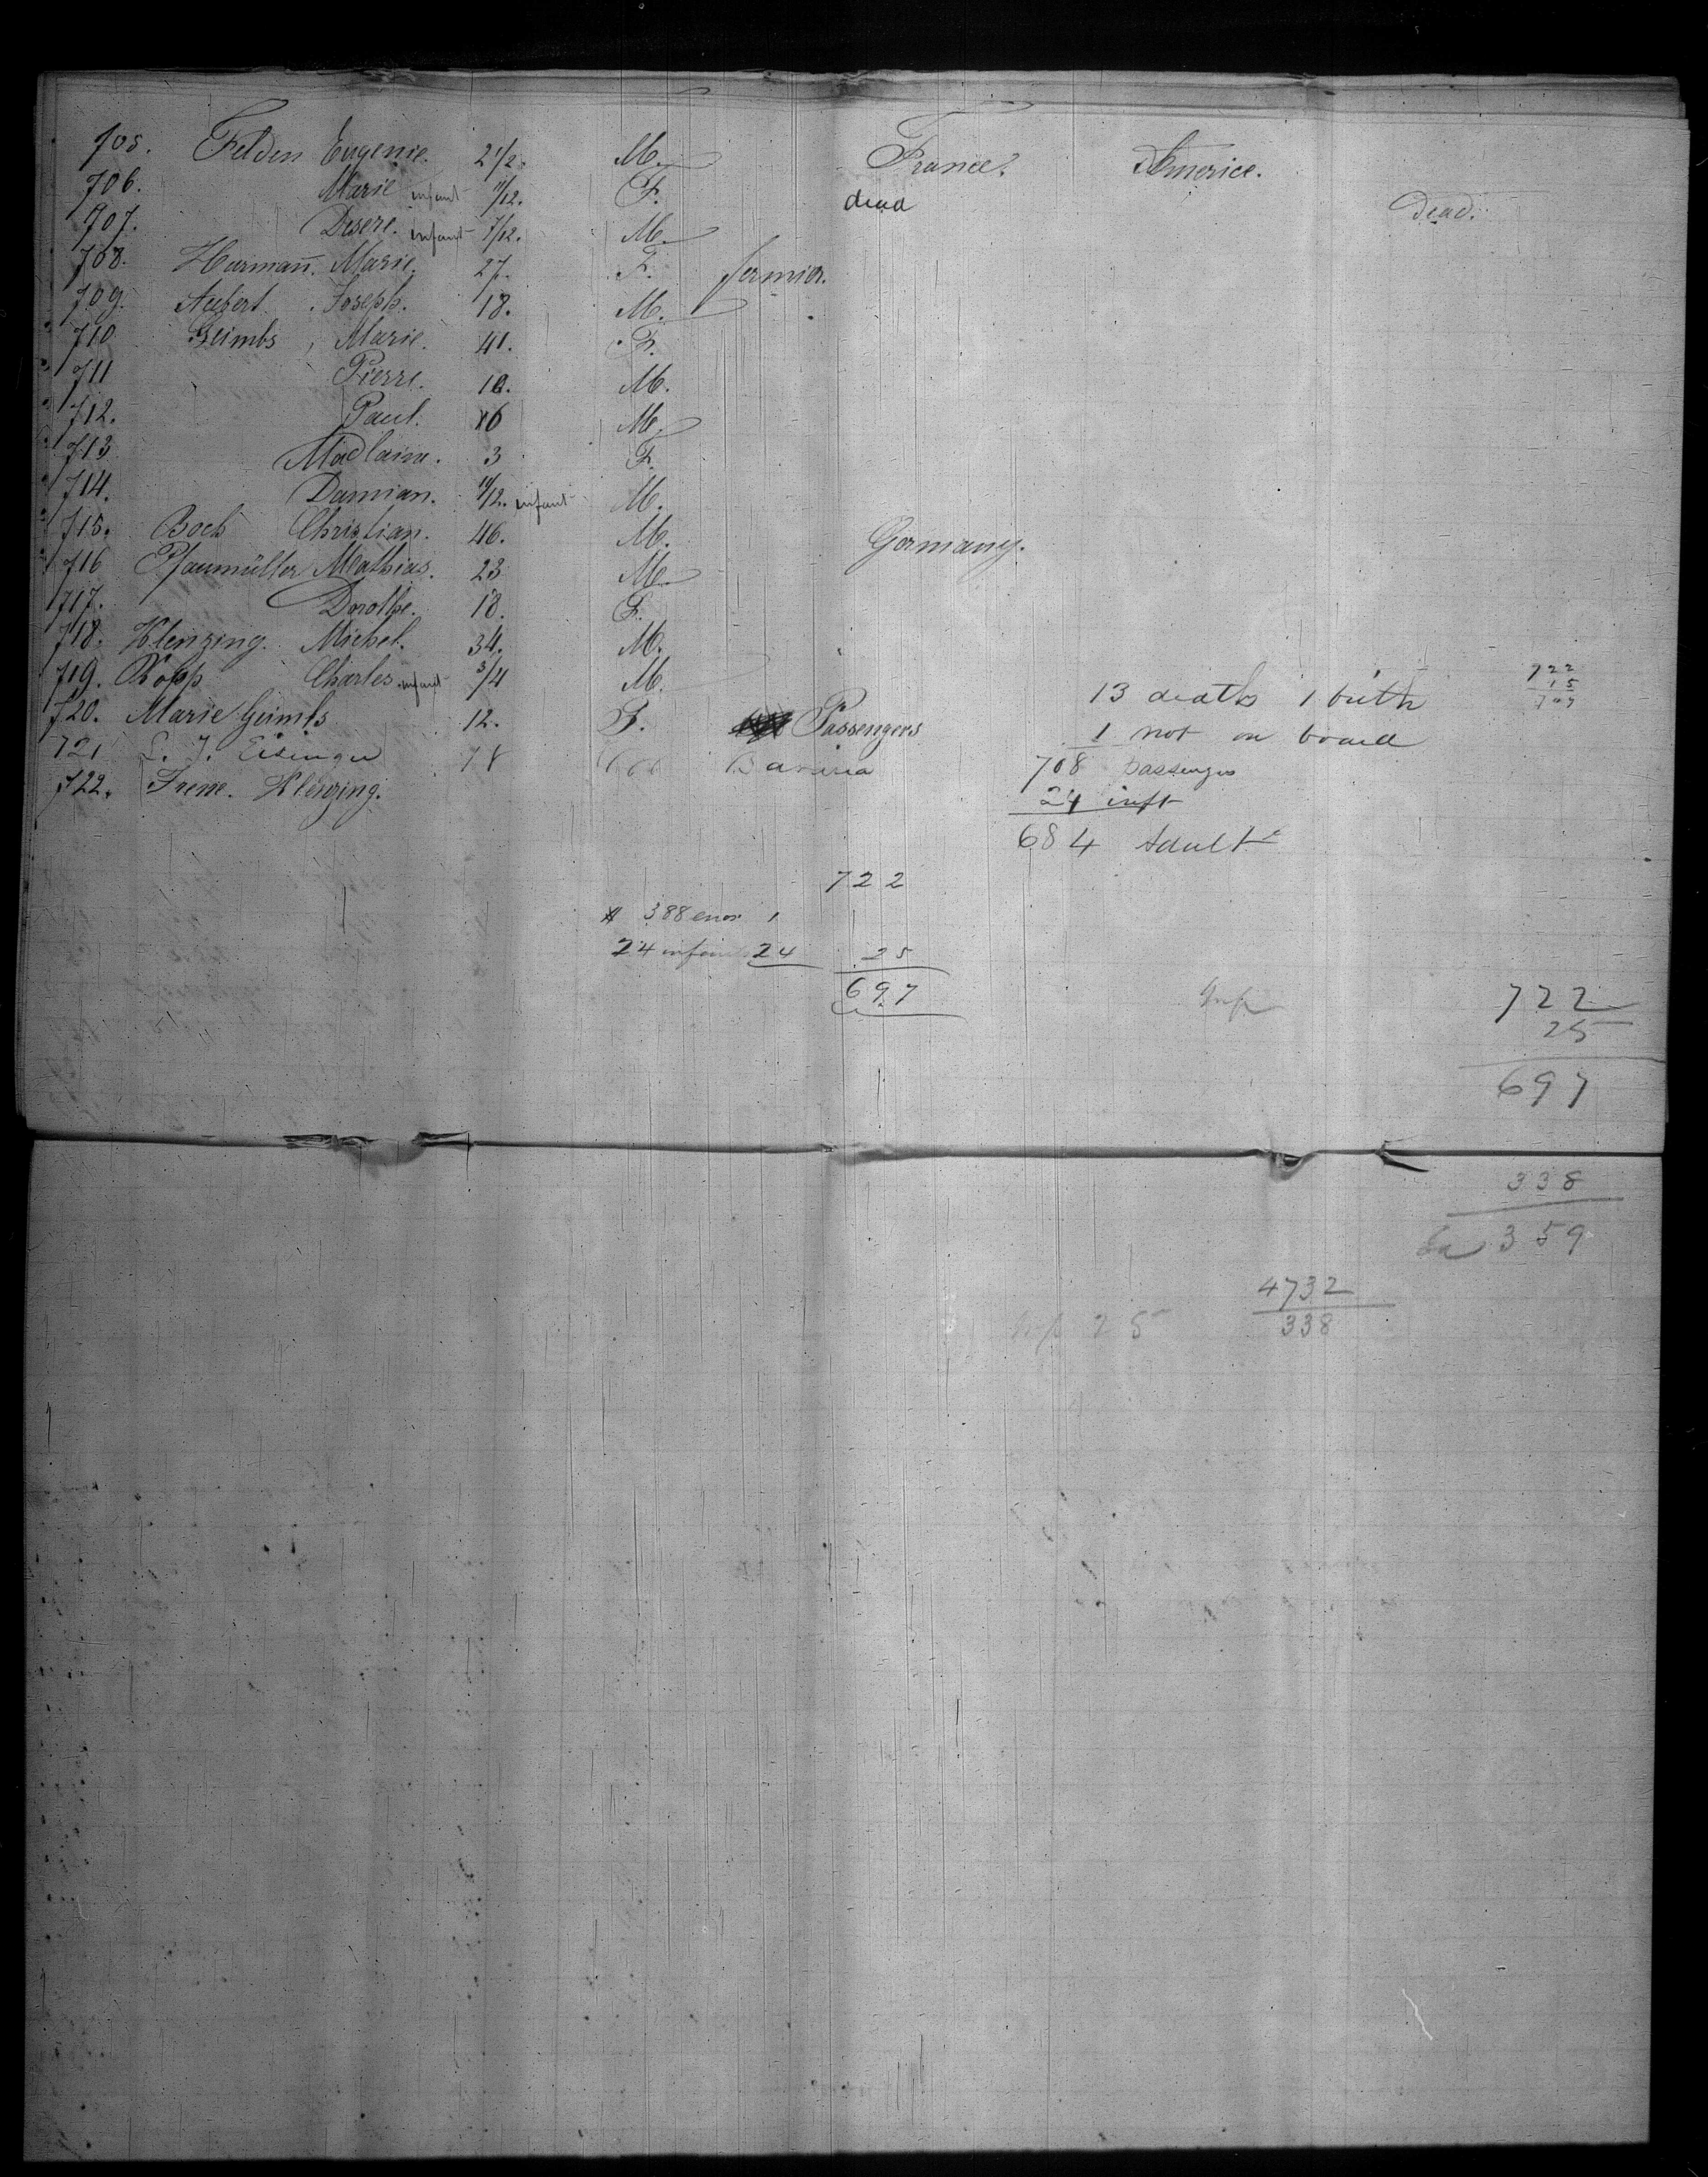 705. Felden Eugenie. 2 1/2. M. France. Americe.
706. Marie infant 11/12. F. dead Dead.
707. Desere. infant 7/12. M.
708. Hermañ. Marie. 27. F. fermier.
709. Aubert Joseph. 18. M.
710 Geimbs, Marie. 41. F.
711 Pierre. 10. M.
712. Paul. 6 M.
713 Madlaine. 3 F.
714. Damian. 11/12. infant M.
715. Boch Christian. 46. M. Germany.
716 Pfaumüller Mathias. 23 M.
717. Dorothe. 18. F.
718. Klenzing. Michel. 34. M.
719. Kopp Charles. infant 3/4 M.
720. Marie Geimbs 12. F. Passengers
721 L. J. Eisinger 78 Bavaria
722. Irene. Klenzing.
13 deaths 1 birth
1 not on board
708 passengers
24 inft
684 Adults
722
15
707
722
388 error 1
24 infants 24 25
697
Inf 722
25
697
338
359
4732
338
Inf 25